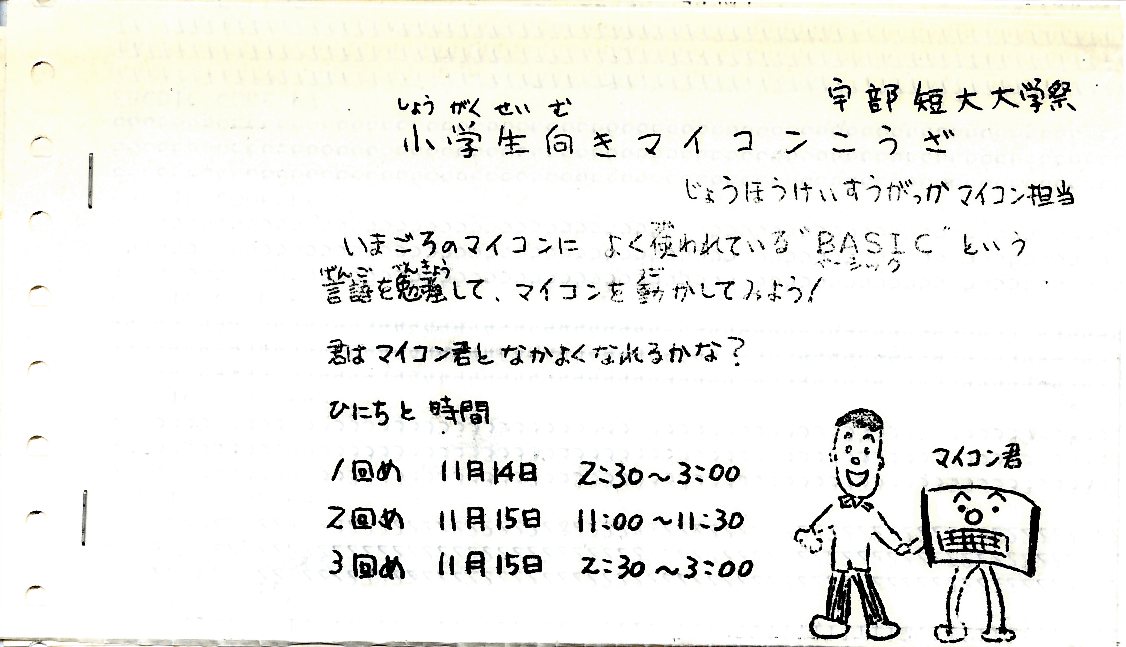 宇部短大大学祭
しょう がく せい む
小学生向きマイコンこうざ
じょうほうけいすうがっか マイコン担当
いまごろのマイコンに よく使われている"BASIC"という
ベーシック
げんご べんきょう
言語を勉強して、マイコンを動かしてみよう!
君はマイコン君となかよくなれるかな?
ひにちと時間
1回め 11月14日 2:30～3:00
2回め 11月15日 11:00～11:30
3回め 11月15日 2:30～3:00
マイコン君